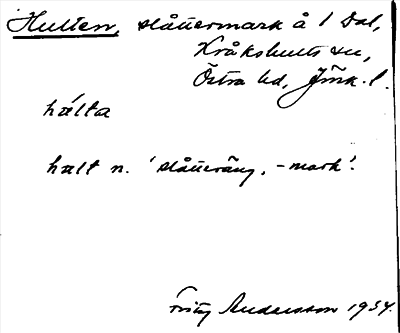 Hulten, slåttermark å 1 Dal,
Kråkshults sn,
Östra hd, Jönk. l.
hulta
hult n. 'slåtteräng, -mark'.
Fritz Andersson 1934.